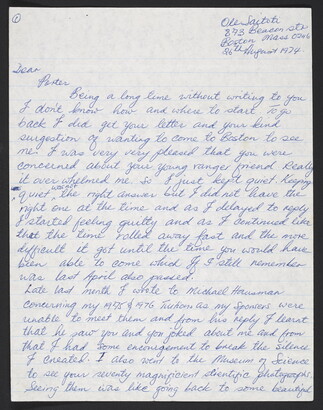 ①
Ole Saitoti
873 Beacon St.
Boston Mass 02146
26th August 1974.
Dear
Porter
Being a long time without writing to you
I don't know how and where to start. To go
back I did get your letter and your kind
surgestion of wanting to come to Boston to see
me. I was very very pleased that you were
concerned about your young ranger friend. Really
it over whelmed me so I just kept quiet. Keeping
Quiet wasn't the right answer but I did not have the
right one at the time and as I delayed to reply
I started feeling guilty and as I continued like
that the time rolled away fast and the more
difficult it got until the time you would have
been able to come which if I still remember
was last April also passed.
Late last month I wrote to Michael Hausman
concerning my 1975 & 1976 Tuition as my Sponsers were
unable to meet them and from his reply I learnt
that he saw you and you joked about me and from
that I had some encouragement to break the silence
I created. I also went to the Museum of Science
to see your seventy magnificent scientific photographs.
Seeing them was like going back to some beautiful